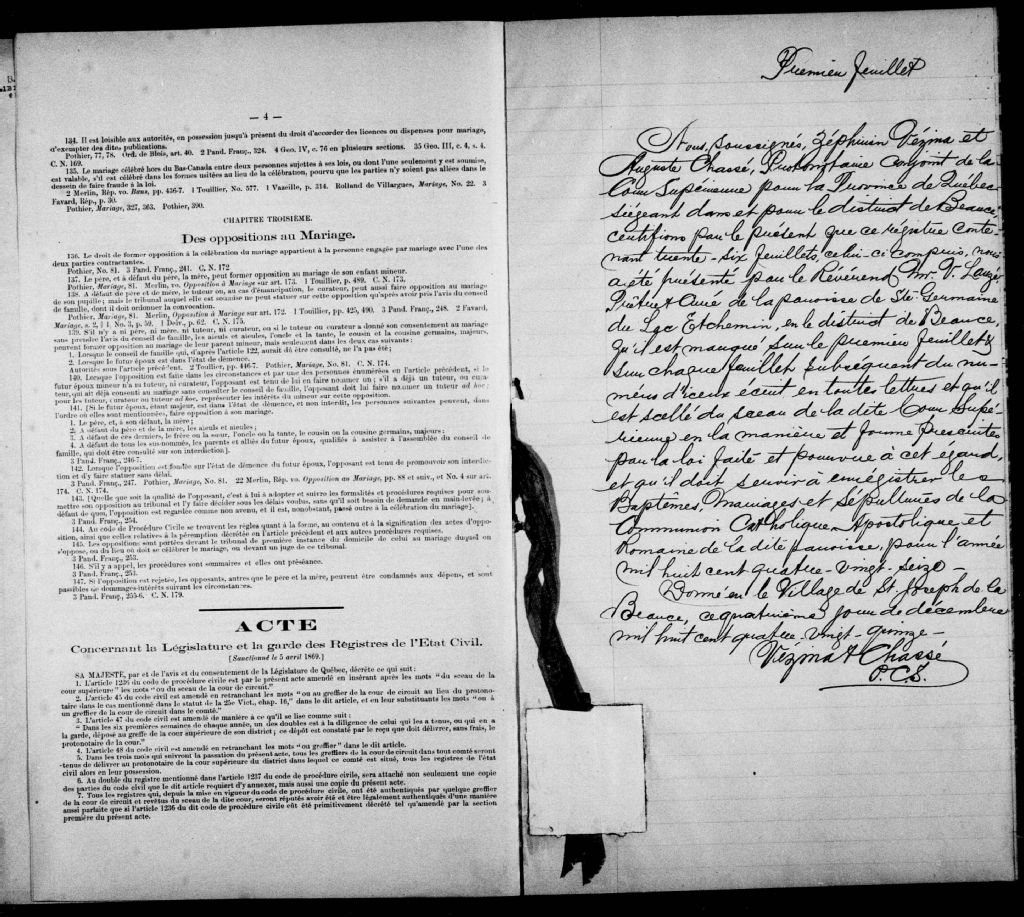 — 4 —
134. Il est loisible aux autorités, en possession jusqu'à présent du droit d'accorder des licences ou dispenses pour mariage,
d'exempter des dites publications.
Pothier, 77, 78. Ord. de Blois, art. 40. 2 Pand. Franç., 324. 4 Geo. IV, c. 76 en plusieurs sections. 35 Geo. III, c. 4, s. 4.
C. N. 169.
135. Le mariage célébré hors du Bas-Canada entre deux personnes sujettes à ses lois, ou dont l'une seulement y est soumise,
est valable, s'il est célébré dans les formes usitées au lieu de la célébration, pourvu que les parties n'y soient pas allées dans le
dessein de faire fraude à la loi.
2 Merlin, Rép. vo. Bans, pp. 436-7. 1 Touillier, No. 577. 1 Vazeille, p. 314. Rolland de Villargues, Mariage, No. 22. 3
Favard, Rép., p. 30.
Pothier, Mariage, 327, 363. Pothier, 390.
CHAPITRE TROISIÈME.
Des oppositions au Mariage.
136. Le droit de former opposition à la célébration du mariage appartient à la personne engagée par mariage avec l'une des
deux parties contractantes.
Pothier, No. 81. 3 Pand. Franç., 241. C. N. 172
137. Le père, et à défaut du père, la mère, peut former opposition au mariage de son enfant mineur.
Pothier, Mariage, 81. Merlin, vo. Opposition à Mariage sur art. 173. 1 Touillier, p. 489. C. N. 173.
138. A défaut de père et de mère, le tuteur ou, au cas d'émancipation, le curateur, peut aussi faire opposition au mariage
de son pupille; mais le tribunal auquel elle est soumise ne peut statuer sur cette opposition qu'après avoir pris l'avis du conseil
de famille, dont il doit ordonner la convocation.
Pothier, Mariage, 81. Merlin, Opposition à Mariage sur art. 172. 1 Touillier, pp. 425, 490. 3 Pand. Franç., 248. 2 Favard,
Mariage, s. 2, § 1. No. 3, p. 59. 1 Delv., p. 62. C. N. 175.
139. S'il n'y a ni père, ni mère, ni tuteur, ni curateur, ou si le tuteur ou curateur a donné son consentement au mariage
sans prendre l'avis du conseil de famille, les aieuls et aieules, l'oncle et la tante, le cousin et la cousine germains, majeurs,
peuvent former opposition au mariage de leur parent mineur, mais seulement dans les deux cas suivants :
1. Lorsque le conseil de famille qui, d'après l'article 122, aurait dû être consulté, ne l'a pas été;
2. Lorsque le futur époux est dans l'état de démence.
Autorités sous l'article précédent. 2 Touillier, pp. 446-7. Pothier, Mariage, No. 81. C. N. 174.
140. Lorsque l'opposition est faite dans les circonstances et par une des personnes énumérées en l'article précédent, si le
futur époux mineur n'a ni tuteur, ni curateur, l'opposant est tenu de lui en faire nommer un; s'il a déjà un tuteur, ou cura-
teur, qui ait déjà consenti au mariage sans consulter le conseil de famille, l'opposant doit lui faire nommer un tuteur ad hoc;
pour les tuteur, curateur ou tuteur ad hoc, représenter les intérêts du mineur sur cette opposition.
141. [Si le futur époux, étant majeur, est dans l'état de démence, et non interdit, les personnes suivantes peuvent, dans
l'ordre où elles sont mentionnées, faire opposition à son mariage.
1. Le père, et, à son défaut, la mère;
2. A défaut du père et de la mère, les aieuls et aieules;
3. A défaut de ces derniers, le frère ou la sœur, l'oncle ou la tante, le cousin ou la cousine germains, majeurs;
4. A défaut de tous les sus-nommés, les parents et alliés du futur époux, qualifiés à assister à l'assemblée du conseil de
famille, qui doit être consulté sur son interdiction].
3 Pand. Franç., 246-7.
142. Lorsque l'opposition est fondée sur l'état de démence du futur époux, l'opposant est tenu de promouvoir son interdic-
tion et d'y faire statuer sans délai.
3 Pand. Franç., 247. Pothier, Mariage, No. 81. 22 Merlin, Rép. vo. Opposition au Mariage, pp. 88 et suiv., et No. 4 sur art.
174. C. N. 174.
143. [Quelle que soit la qualité de l'opposant, c'est à lui à adopter et suivre les formalités et procédures requises pour sou-
mettre son opposition au tribunal et l'y faire décider sous les délais voulus, sans qu'il soit besoin de demande en main-levée; à
défaut de quoi, l'opposition est regardée comme non avenu, et il est, nonobstant, passé outre à la célébration du mariage].
3 Pand. Franç., 254.
144. Au code de Procédure Civile se trouvent les règles quant à la forme, au contenu et à la signification des actes d'oppo-
sition, ainsi que celles relatives à la péremption décrétée en l'article précédent et aux autres procédures requises.
145. Les oppositions sont portées devant le tribunal de première instance du domicile de celui au mariage duquel on
s'oppose, ou du lieu où doit se célébrer le mariage, ou devant un juge de ce tribunal.
3 Pand. Franç., 253.
146. S'il y a appel, les procédures sont sommaires et elles ont préséance.
3 Pand. Franç., 253.
147. Si l'opposition est rejetée, les opposants, autres que le père et la mère, peuvent être condamnés aux dépens, et sont
passibles de dommages-intérêts suivant les circonstances.
3 Pand. Franç., 255-6. C. N. 179.
ACTE
Concernant la Législature et la garde des Régistres de l'Etat Civil.
[Sanctionné le 5 avril 1869.]
SA MAJESTÉ, par et de l'avis et du consentement de la Législature de Québec, décrète ce qui suit :
1. L'article 1236 du code de procédure civile est par le présent acte amendé en insérant après les mots "du sceau de la
cour supérieure" les mots "ou du sceau de la cour de circuit."
2. L'article 45 du code civil est amendé en retranchant les mots "ou au greffier de la cour de circuit au lieu du protono-
taire dans le cas mentionné dans le statut de la 25e Vict., chap. 16," dans le dit article, et en leur substituants les mots "ou à
un greffier de la cour de circuit dans le comté."
3. L'article 47 du code civil est amendé de manière à ce qu'il se lise comme suit :
"Dans les six premières semaines de chaque année, un des doubles est à la diligence de celui qui les a tenus, ou qui en a
la garde, déposé au greffe de la cour supérieure de son district; ce dépôt est constaté par le reçu que doit délivrer, sans frais, le
protonotaire de la cour."
4. L'article 48 du code civil est amendé en retranchant les mots "ou greffier" dans le dit article.
5. Dans les trois mois qui suivront la passation du présent acte, tous les greffiers de la cour de circuit dans tout comté seront
tenus de délivrer au protonotaire de la cour supérieure du district dans lequel ce comté est situé, tous les registres de l'état
civil alors en leur possession.
6. Au double du registre mentionné dans l'article 1237 du code de procédure civile, sera attaché non seulement une copie
des parties du code civil que le dit article requiert d'y annexer, mais aussi une copie du présent acte.
7. Tous les registres qui, depuis la mise en vigueur du code de procédure civile, ont été authentiqués par quelque greffier
de la cour de circuit et revêtus du sceau de la dite cour, seront réputés avoir été et être légalement authentiqués d'une manière
aussi parfaite que si l'article 1236 du dit code de procédure civile eût été primitivement décrété tel qu'amendé par la section
première du présent acte.
Premier feuillet
Nous, soussignés, Zéphirin Vézina et
Auguste Chassé, Protonotaire conjoint de la
Cour Supérieure pour la Province de Québec
siégeant dans et pour le district de Beauce,
certifions par le présent que ce régistre conte-
nant trente-six feuillets, celui-ci compris, nous
a été présenté par le Révérend Mr. T. Lauzé
Prêtre & Curé de la paroisse de Ste Germaine
du Lac Etchemin, en le district de Beauce,
qu'il est marqué sur le premier feuillet &
sur chaque feuillet subséquent du nu-
méro d'iceux écrit en toutes lettres et qu'il
est scellé du sceau de la dite Cour Supé-
rieure en la manière et forme prescrites
par la loi faite et pourvue à cet égard,
et qu'il doit servir à enrégistrer les
Baptêmes, Mariages et Sépultures de la
Communion Catholique, Apostolique et
Romaine de la dite paroisse, pour l'année
mil huit cent quatre-vingt-seize—
Donné en le Village de St Joseph de la
Beauce, ce quatrième jour de décembre
mil huit cent quatre-vingt-quinze—
Vézina & Chassé
P.C.S.